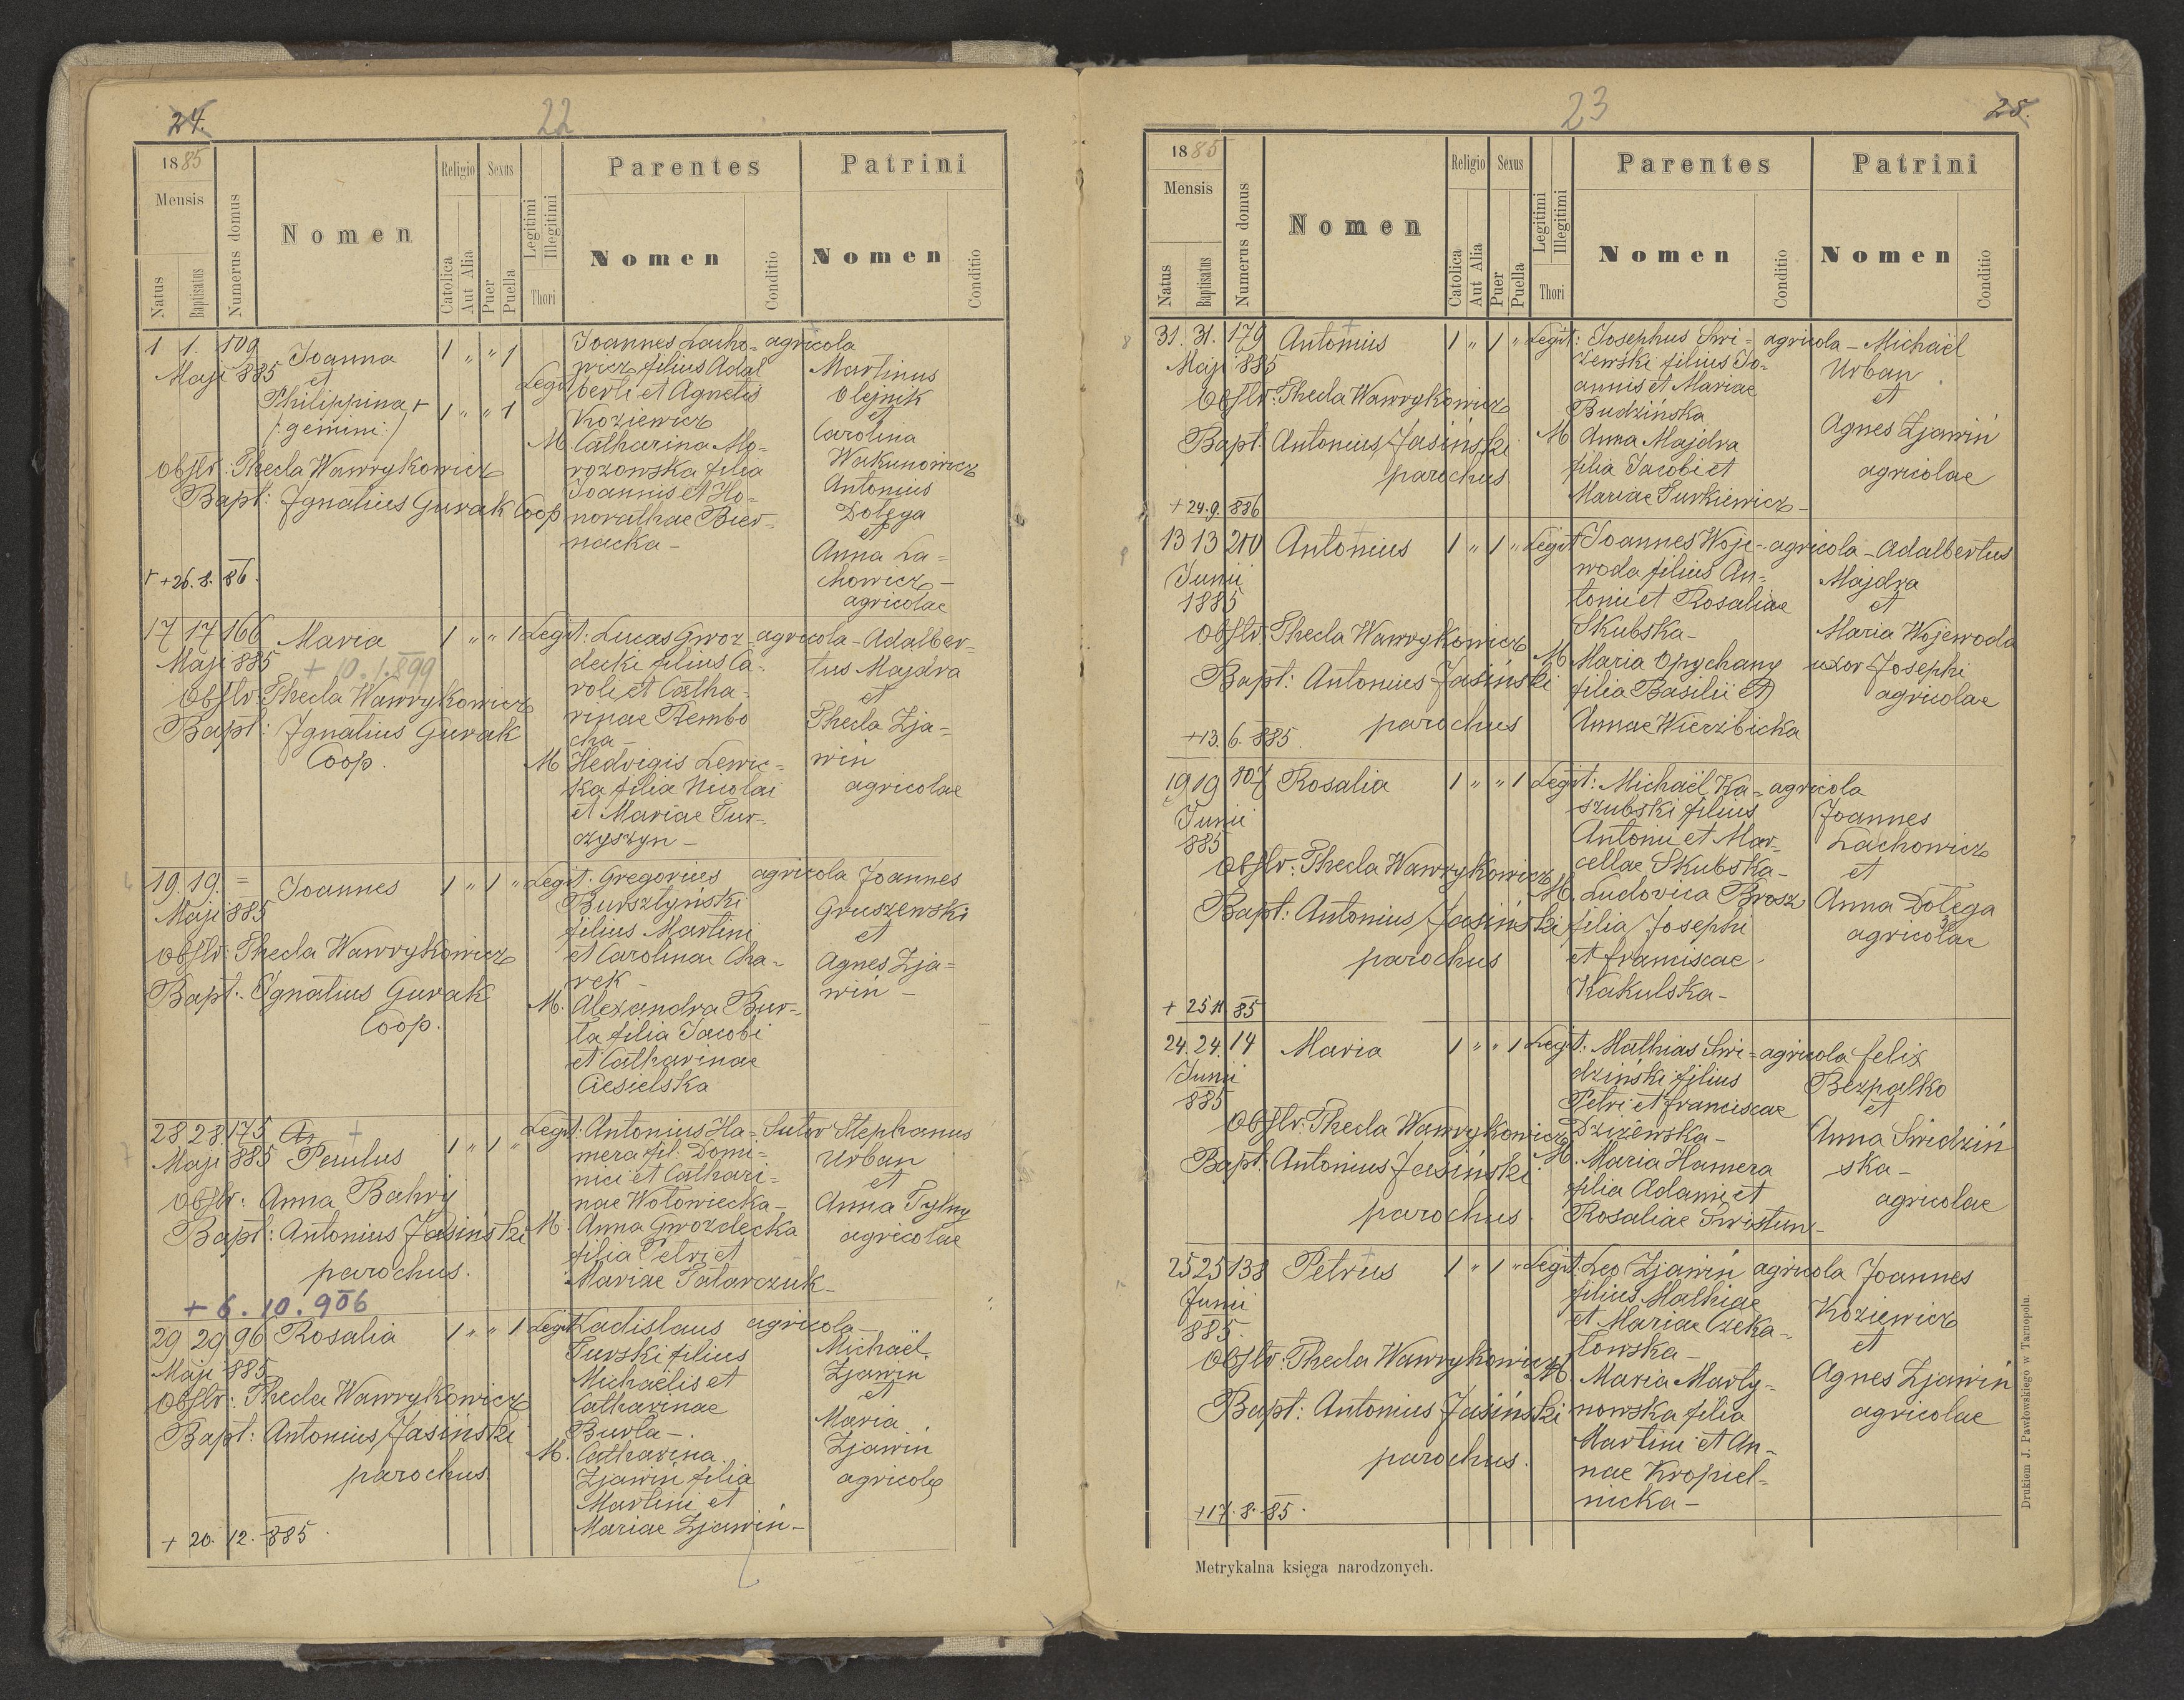 24.
22
1885
Mensis
Natus
Baptisatus
Numerus domus
Nomen
Religio
Catolica
Aut Alia
Sexus
Puer
Puella
Legitimi
Illegitimi
Thori
Parentes
Nomen
Conditio
Patrini
Nomen
Conditio
1 1. 109 Joanna 1 " " 1 Joannes Lacho= agricola
Maji 885 et wicz filius Adal Martinus
Philippina + 1 " " 1 Legit berti et Agnetis Olejnik
/: gemini :/ Koziewicz et
M. Catharina Mo- Carolina
Obstr: Thecla Wawrykowicz rozowska filia Wakunowicz
Bapt: Ignatius Gurak Coop Joannis et Ho= Antonius
norathae Bier= Dołęga
nacka - et
Anna La=
+ +26. 8. 86. chowicz -
agricolae
17 17 166 Maria 1 " " 1 Legit: Lucas Gwoz= agricola - Adalber=
Maji 885 + 10.1.899 decki filius Ca- tus Majdra
Obstr Thecla Wawrykowicz roli et Catha- et
Bapt: Ignatius Gurak rinae Rembo Thecla Zja=
Coop. cha - win
M Hedvigis Lewic= agricolae
ka filia Nicolai
et Mariae Tur-
czyszyn -
19. 19. = Joannes 1 " 1 " Legit. Gregorius agricola Joannes
Maji 885 Bursztyński Gruszewski
filius Martini et
Obstr: Thecla Wawrykowicz et Carolinae Cha- Agnes Zja=
Bapt. Ignatius Gurak rek - win -
Coop. M. Alexandra Bur-
ta filia Jacobi
et Catharinae
Ciesielska
28 28. 175 An + Legit: Antonius Ha= Sutor Stephanus
Maji 885 Paulus 1 " 1 " mera fil. Domi= Urban
Obstr: Anna Bahry nici et Cathari= et
nae Wołowiecka - Anna Tylny
Bapt: Antonius Jasiński M. Anna Gwozdecka agricolae
parochus. filia Petri et
Mariae Tatarczuk -
+ 6. 10. 906
29 29 96 Rosalia 1 " " 1 Legit Ladislaus agricola -
Maji 885 Turski filius Michaël
Obstr: Thecla Wawrykowicz Michaelis et Zjawin
Catharinae et
Bapt: Antonius Jasiński Burla - . Maria
parochus M. Catharina Zjawin
Zjawin filia agricolae
Martini et
Mariae Zjawiń -
+ 20. 12. 885.
23
25.
1885
Mensis
Natus
Baptisatus
Numerus domus
Nomen
Religio
Catolica
Aut Alia
Sexus
Puer
Puella
Legitimi
Illegitimi
Thori
Parentes
Nomen
Conditio
Patrini
Nomen
Conditio
31. 31. 179 Antonius 1 " 1 " Legit: Josephus Swi= agricola - Michaël
Maji 885 zewski filius Jo- Urban
Obstr: Thecla Wawrykowicz annis et Mariae et
Budzińska Agnes Zjawiń
Bapt: Antonius Jasiński M Anna Majdra agricolae
parochus. filia Jacobi et
+ 24. 9. 886 Mariae Turkiewicz -
13 13 210 Antonius 1 " 1 " Legit Joannes Woje- agricola - Adalbertus
Junii woda filius An- Majdra
1885 tonii et Rosaliae et
Obstr: Thecla Wawrykowicz Skubska - Maria Wojewoda
M Maria Opychany uxor Josephi
Bapt: Antonius Jasiński filia Basilii et agricolae
parochus Annae Wierzbicka
+13. 6. 885.
19 19 107 Rosalia 1 " " 1 Legit: Michaël Ka- agricola
Junii szubski filius Joannes
885 Antonii et Mar- Lachowicz
Obstr: Thecla Wawrykowicz cellae Skubska - et
M. Ludovica Brosz Anna Dołęga
Bapt: Antonius Jasiński filia Josephi agricolae
parochus et Franciscae
Kakulska -
+ 25 11 85
24. 24. 14 Maria 1 " " 1 Legit. Mathias Swi= agricola Felix
Junii dziński filius Bezpalko
885 Petri et Franciscae et
Obstr: Thecla Wawrykowicz Dziżewska - Anna Swidziń
Bapt: Antonius Jasiński M. Maria Hamera ska -
filia Adami et agricolae
parochus. Rosaliae Swistun -
25 25 138 Petrus 1 " 1 " Legit: Leo Zjawiń agricola Joannes
Junii filius Mathiae Koziewicz
885. et Mariae Czeka- et
Obstr: Thecla Wawrykowicz towska - Agnes Zjawiń
M. Maria Marty- agricolae
Bapt: Antonius Jasiński nowska filia
parochus. Martini et An-
nae Kropiel-
nicka -
+17. 8. 85.
Metrykalna księga narodzonych.
Drukiem J. Pawłowskiego w Tarnopolu.